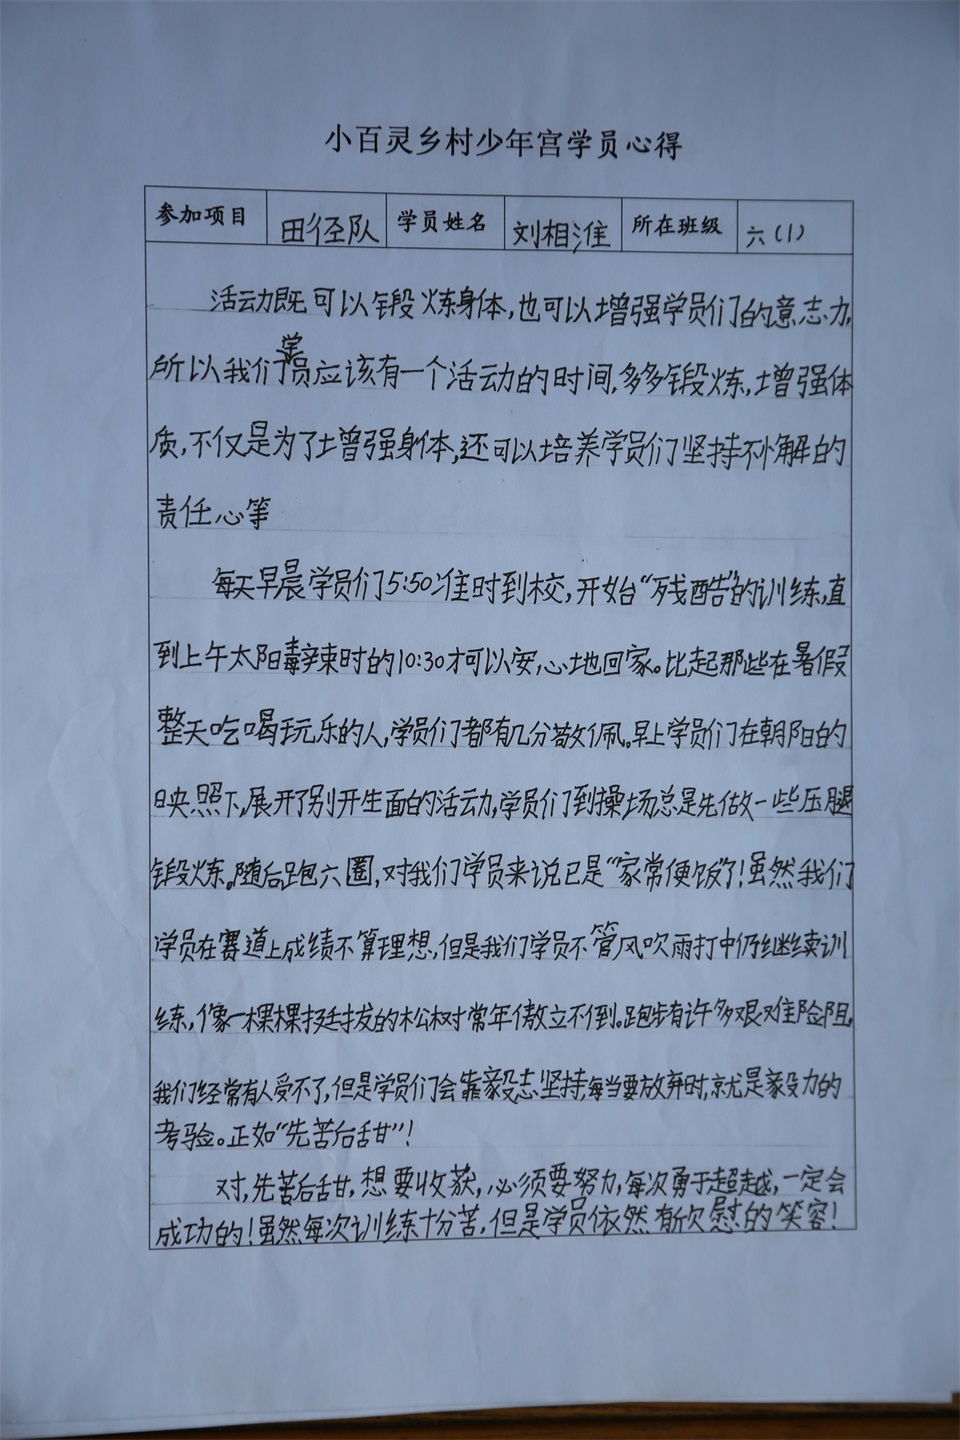 小百灵乡村少年宫学员心得
参加项目 田径队 学员姓名 刘相淮 所在班级 六(1)
活动既可以锻炼身体,也可以增强学员们的意志力,
所以我们学员应该有一个活动的时间,多多锻炼,增强体
质,不仅是为了增强身体,还可以培养学员们坚持不懈的
责任心等
每天早晨学员们5:50准时到校,开始“残酷”的训练,直
到上午太阳毒辣时的10:30才可以安心地回家。比起那些在暑假
整天吃喝玩乐的人,学员们都有几分敬佩。早上学员们在朝阳的
映照下,展开了别开生面的活动,学员们到操场总是先做一些压腿
锻炼。随后跑六圈,对我们学员来说已是“家常便饭”了!虽然我们
学员在赛道上成绩不算理想,但是我们学员不管风吹雨打中仍继续训
练,像一棵棵挺拔的松树常年傲立不倒。跑步有许多艰难险阻,
我们经常有人受不了,但是学员们会靠毅志坚持,每当要放弃时,就是毅力的
考验。正如“先苦后甜”!
对,先苦后甜,想要收获,必须要努力,每次勇于超越,一定会
成功的!虽然每次训练十分苦,但是学员依然有欣慰的笑容!